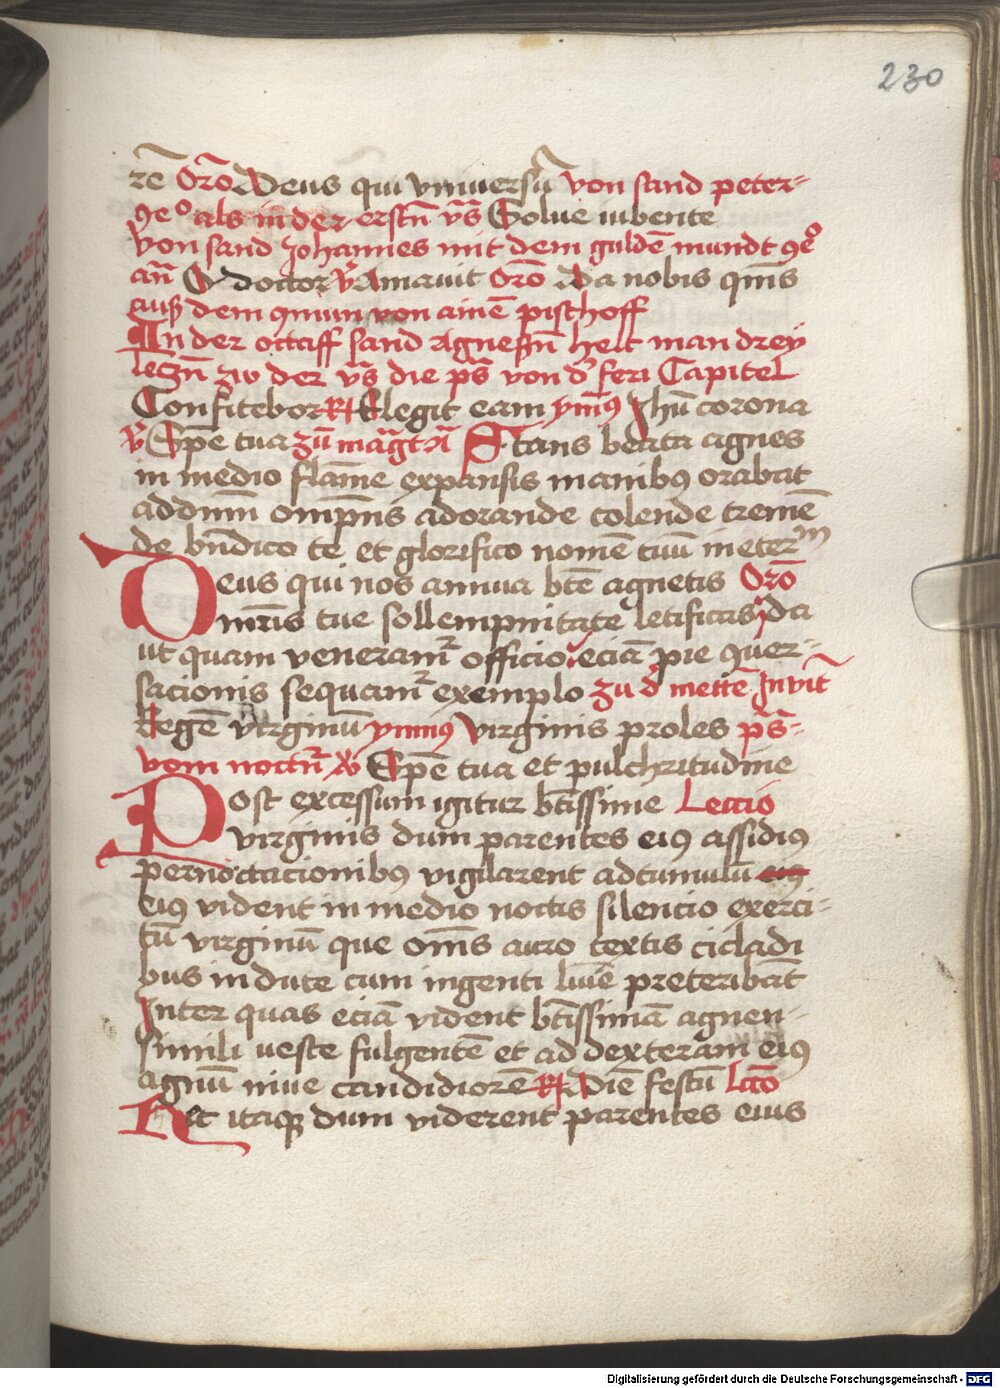 230
rē Orō Deus qui vniuersū von sand peter-
9e⁰ als in der erstn̄ vs̄ Solue iubente
von sand Johannes mit dem guldē mundt 9e⁰
an̄ O doctor v̄ Amauit Orō Da nobis qm̄s
aus dem 9mun von ainē pischoff
In der octaff sand Agnesn̄ helt man drey
leczn̄ zw der vs̄ die ps̄ von d' feri Capitel
Confitebor R Elegit eam ymn9 Jhū corona
v̄ Spē tua zū mag̅t a̅ Stans beata agnes
in medio flāme expansis manibus orabat
ad dn̄m omp̄ns adorande colende tremē
de bn̄dico te et glorifico nomē tuū in eter m
Deus qui nos annua btē agnetis Orō
mr̄is tue sollempnitate letificas da
ut quam veneram̄ officio eciā pie 9uer-
sacionis sequam̄ exemplo zu d' mettē Inuit̄
Regē virginū ymn9 virginis proles ps̄-
vom noctn̄ v̄ Spē tua et pulchritudine
Post excessum igitur bt̄issime Leccio
virginis dum parentes ei9 assidius
pernoctacionibus vigilarent ad tumulū ei9
ei9 vident in medio noctis silencio exerci-
tū virginū que om̄s auro textis cicladi
bus indute cum ingenti lūīe preteribāt
Inter quas eciā vident bt̄issimā agnen-
simili ueste fulgentē et ad dexteram ei9
agnū niue candidiorē R Diē festū Lc̄o
Het itaq3 dum viderent parentes eius
Digitalisierung gefördert durch die Deutsche Forschungsgemeinschaft - DFG